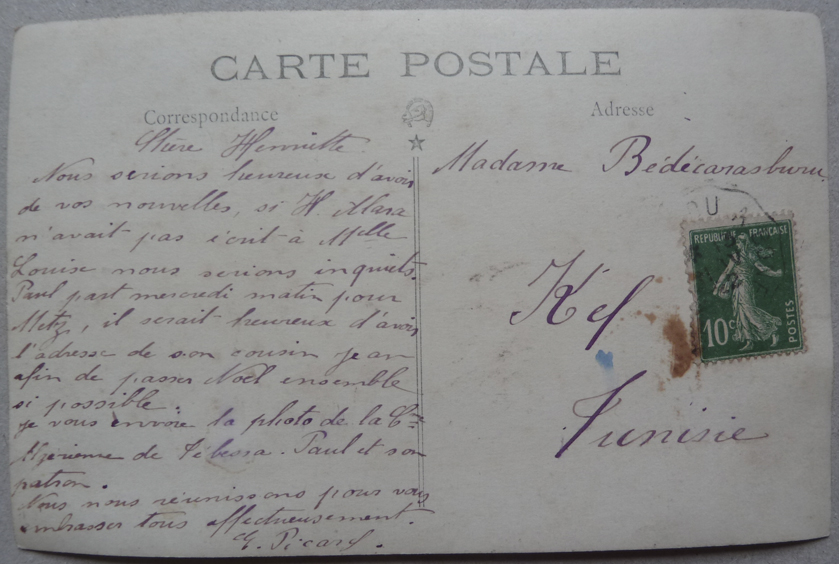 CARTE POSTALE
Correspondance
Adresse
Chère Henriette
Nous serions heureux d'avoir
de vos nouvelles, si H. Mara
n'avait pas écrit à Melle
Louise nous serions inquiets.
Paul part mercredi matin pour
Metz, il serait heureux d'avoir
l'adresse de son cousin jean
afin de passer Noël ensemble
si possible.
je vous envoie la photo de la Cie
Algérienne de Tébessa. Paul et son
patron.
Nous nous réunissons pour vous
embrasser tous affectueusement.
G. Picard.
Madame Bédécarasburu
Kef
Tunisie
OU
REPUBLIQUE FRANÇAISE
10c
POSTES